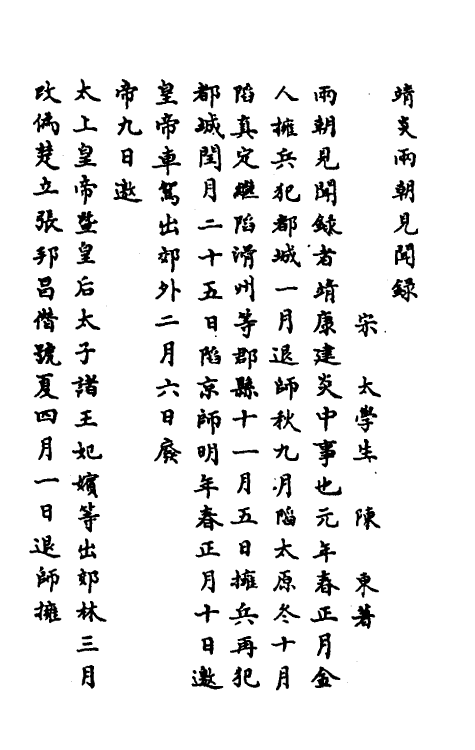 靖炎兩朝見聞録
宋 太學生 陳 東著
兩朝見聞録者靖康建炎中事也元年春正月金
人擁兵犯都城一月退師秋九月陷太原冬十月
陷真定繼陷滑州等郡縣十一月五日擁兵再犯
都城閏月二十五日陷京師明年春正月十日邀
皇帝車駕出郊外二月六日廢
帝九日邀
太上皇帝暨皇后太子諸王妃嬪等出郊林三月
改偽楚立張邦昌僭號夏四月一日退師擁